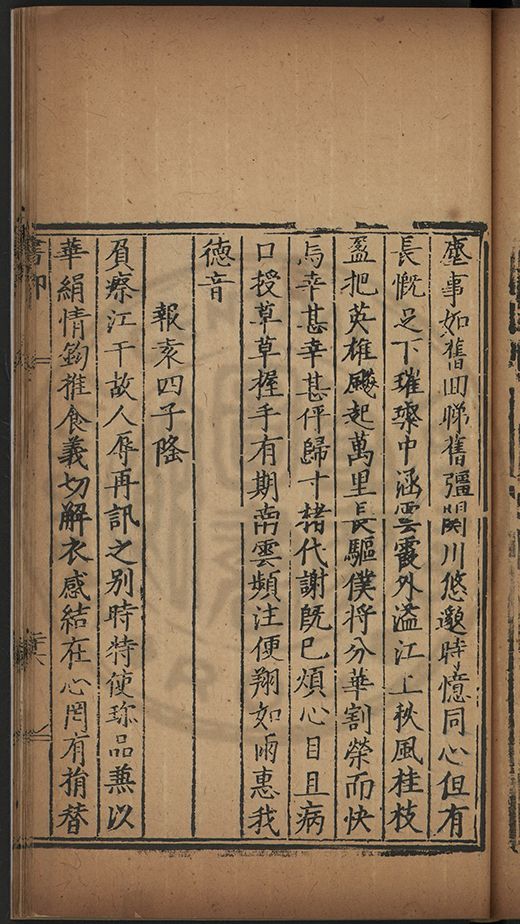 塵事如舊回睇舊彊関川悠邈時憶同心但有
長慨足下璀璨中涵雲霞外溢江上秋風桂枝
盈把英雄飈起萬里長驅僕將分華割榮而快
焉幸甚幸甚伻歸寸楮代謝既已煩心目且病
口授草草握手有期南雲頻注便翔如雨惠我
德音
報袁四子隆
負瘵江干故人辱再訊之别時特使珎品兼以
華絹情鈞推食義切解衣感結在心罔有揃替